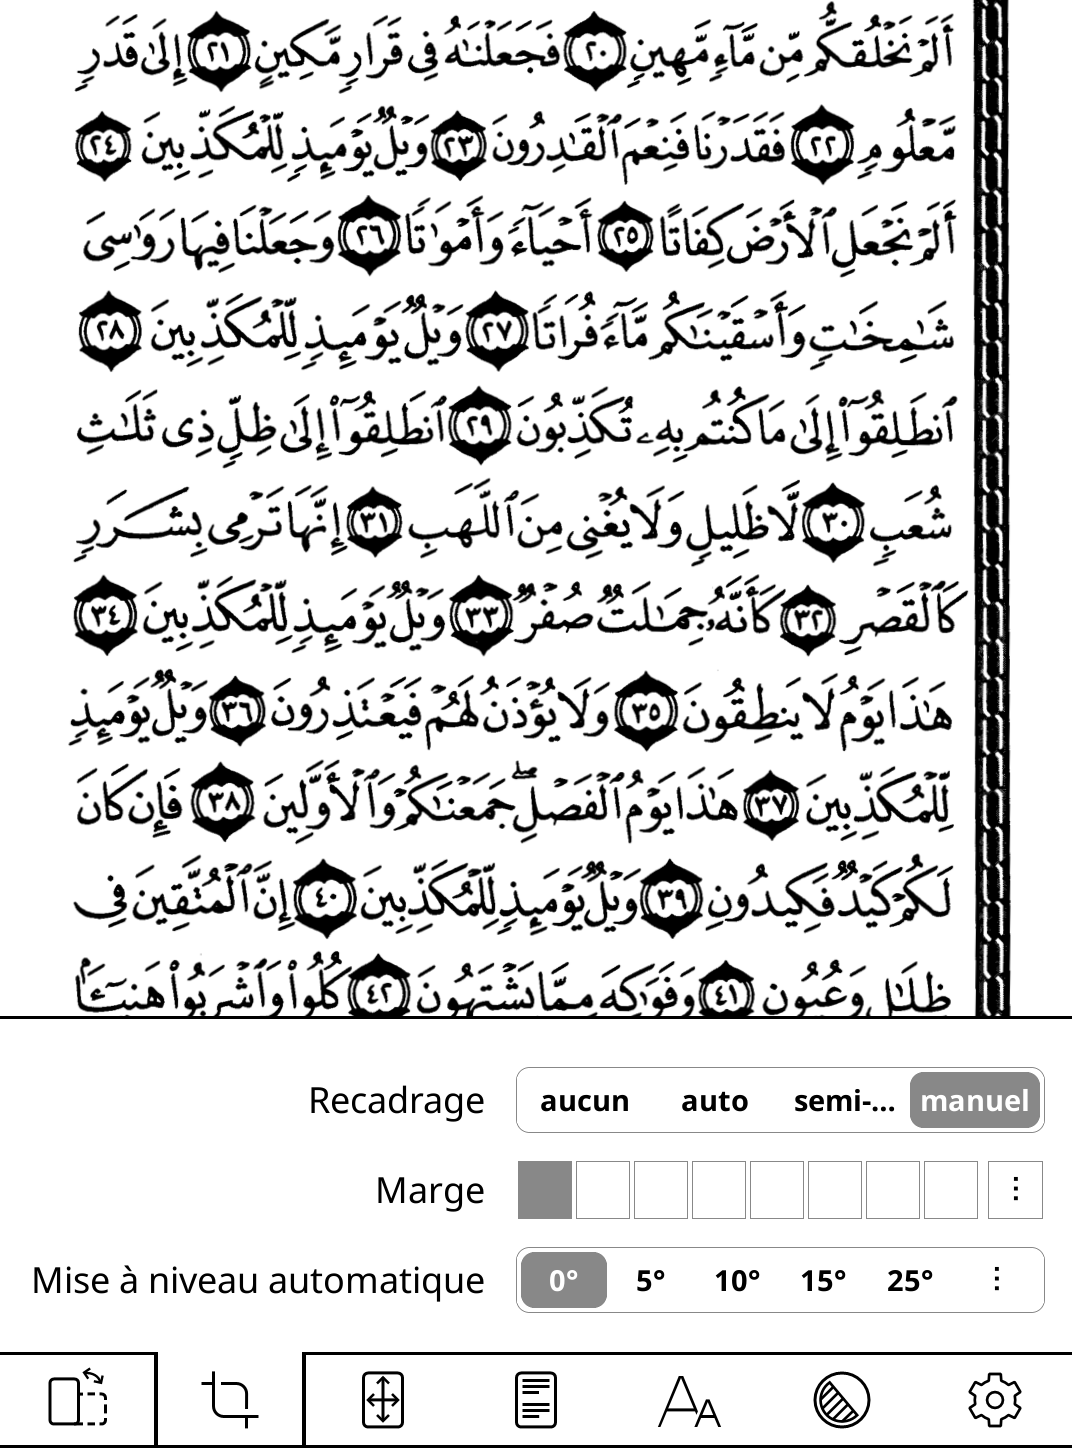 أَلَمْ نَخْلُقكُّم مِّن مَّآءٍ مَّهِينٍ ٢٠ فَجَعَلْنَٰهُ فِى قَرَارٍ مَّكِينٍ ٢١ إِلَىٰ قَدَرٍ
مَّعْلُومٍ ٢٢ فَقَدَرْنَا فَنِعْمَ ٱلْقَٰدِرُونَ ٢٣ وَيْلٌ يَوْمَئِذٍ لِّلْمُكَذِّبِينَ ٢٤
أَلَمْ نَجْعَلِ ٱلْأَرْضَ كِفَاتًا ٢٥ أَحْيَآءً وَأَمْوَٰتًا ٢٦ وَجَعَلْنَا فِيهَا رَوَٰسِىَ
شَٰمِخَٰتٍ وَأَسْقَيْنَٰكُم مَّآءً فُرَاتًا ٢٧ وَيْلٌ يَوْمَئِذٍ لِّلْمُكَذِّبِينَ ٢٨
ٱنطَلِقُوٓا۟ إِلَىٰ مَا كُنتُم بِهِۦ تُكَذِّبُونَ ٢٩ ٱنطَلِقُوٓا۟ إِلَىٰ ظِلٍّ ذِى ثَلَٰثِ
شُعَبٍ ٣٠ لَّا ظَلِيلٍ وَلَا يُغْنِى مِنَ ٱللَّهَبِ ٣١ إِنَّهَا تَرْمِى بِشَرَرٍ
كَٱلْقَصْرِ ٣٢ كَأَنَّهُۥ جِمَٰلَتٌ صُفْرٌ ٣٣ وَيْلٌ يَوْمَئِذٍ لِّلْمُكَذِّبِينَ ٣٤
هَٰذَا يَوْمُ لَا يَنطِقُونَ ٣٥ وَلَا يُؤْذَنُ لَهُمْ فَيَعْتَذِرُونَ ٣٦ وَيْلٌ يَوْمَئِذٍ
لِّلْمُكَذِّبِينَ ٣٧ هَٰذَا يَوْمُ ٱلْفَصْلِ ۖ جَمَعْنَٰكُمْ وَٱلْأَوَّلِينَ ٣٨ فَإِن كَانَ
لَكُمْ كَيْدٌ فَكِيدُونِ ٣٩ وَيْلٌ يَوْمَئِذٍ لِّلْمُكَذِّبِينَ ٤٠ إِنَّ ٱلْمُتَّقِينَ فِى
ظِلَٰلٍ وَعُيُونٍ ٤١ وَفَوَٰكِهَ مِمَّا يَشْتَهُونَ ٤٢ كُلُوا۟ وَٱشْرَبُوا۟ هَنِيٓـًٔۢا
Recadrage aucun auto semi-... manuel
Marge
Mise à niveau automatique 0° 5° 10° 15° 25°
AA